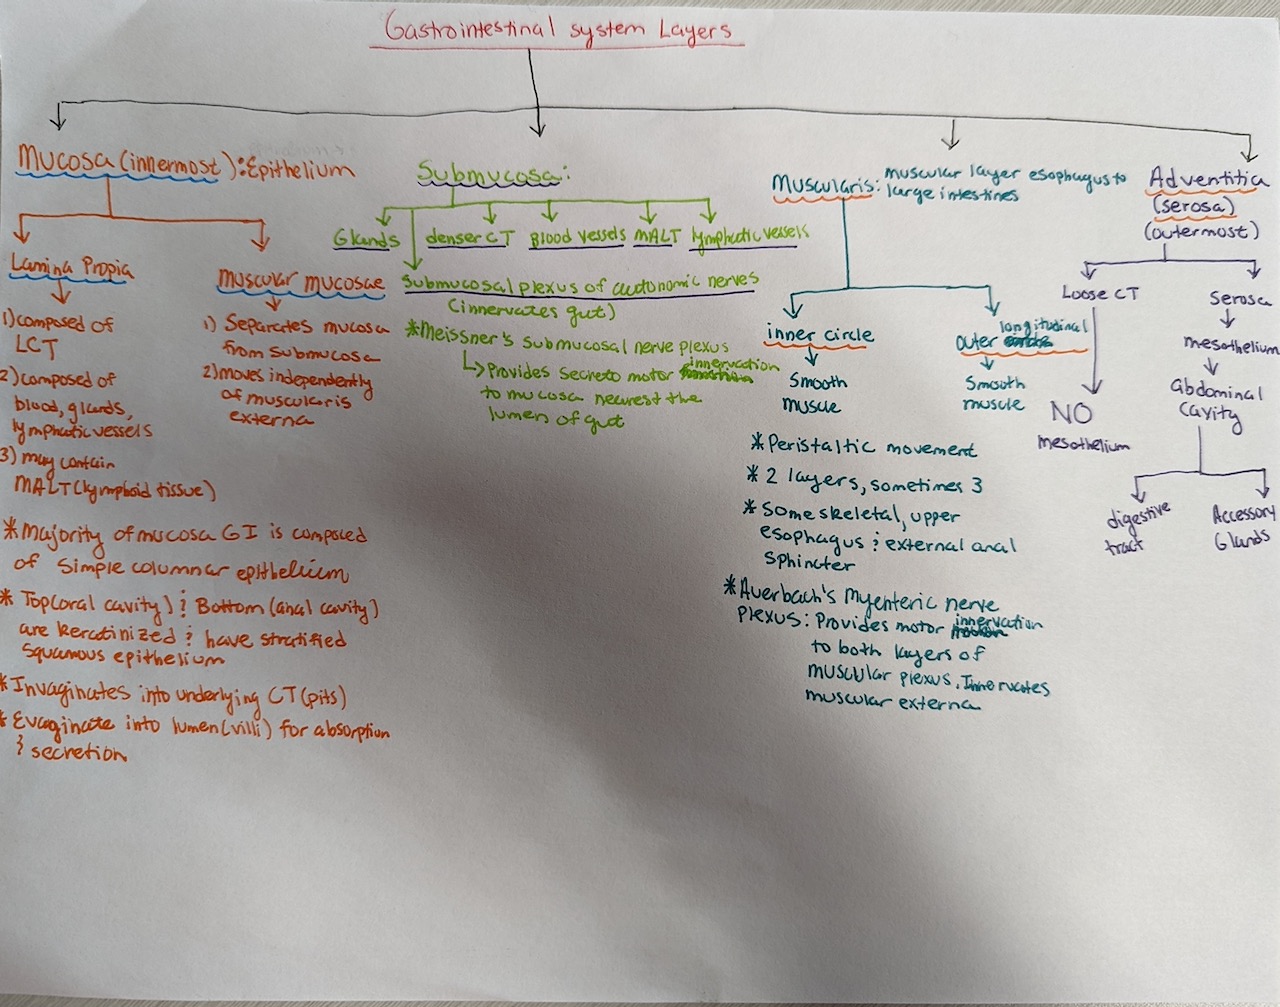 Gastrointestinal system Layers
Mucosa (innermost): Epithelium
Lamina Propia
1) composed of
LCT
2) composed of
blood, glands,
lymphatic vessels
3) may contain
MALT (lymphoid tissue)
Muscular mucosae
1) Separates mucosa
from submucosa
2) moves independently
of muscularis
externa
* Majority of mucosa GI is composed
of simple columnar epithelium
* Top (oral cavity) & Bottom (anal cavity)
are keratinized & have stratified
squamous epithelium
* Invaginates into underlying CT (pits)
* Evaginate into lumen (villi) for absorption
& secretion
Submucosa:
Glands
denser CT
Blood vessels
MALT
lymphatic vessels
Submucosal plexus of autonomic nerves
(innervates gut)
* Meissner's submucosal nerve plexus
↳ Provides secreto motor innervation
to mucosa nearest the
lumen of gut
Muscularis: muscular layer esophagus to
large intestines
inner circle
Smooth
muscle
outer longitudinal
Smooth
muscle
* Peristaltic movement
* 2 layers, sometimes 3
* Some skeletal, upper
esophagus & external anal
Sphincter
* Auerbach's Myenteric nerve
Plexus: Provides motor innervation
to both layers of
muscular plexus. Innervates
muscular externa
Adventitia
(serosa)
(outermost)
Loose CT
NO
mesothelium
Serosa
mesothelium
abdominal
cavity
digestive
tract
Accessory
Glands